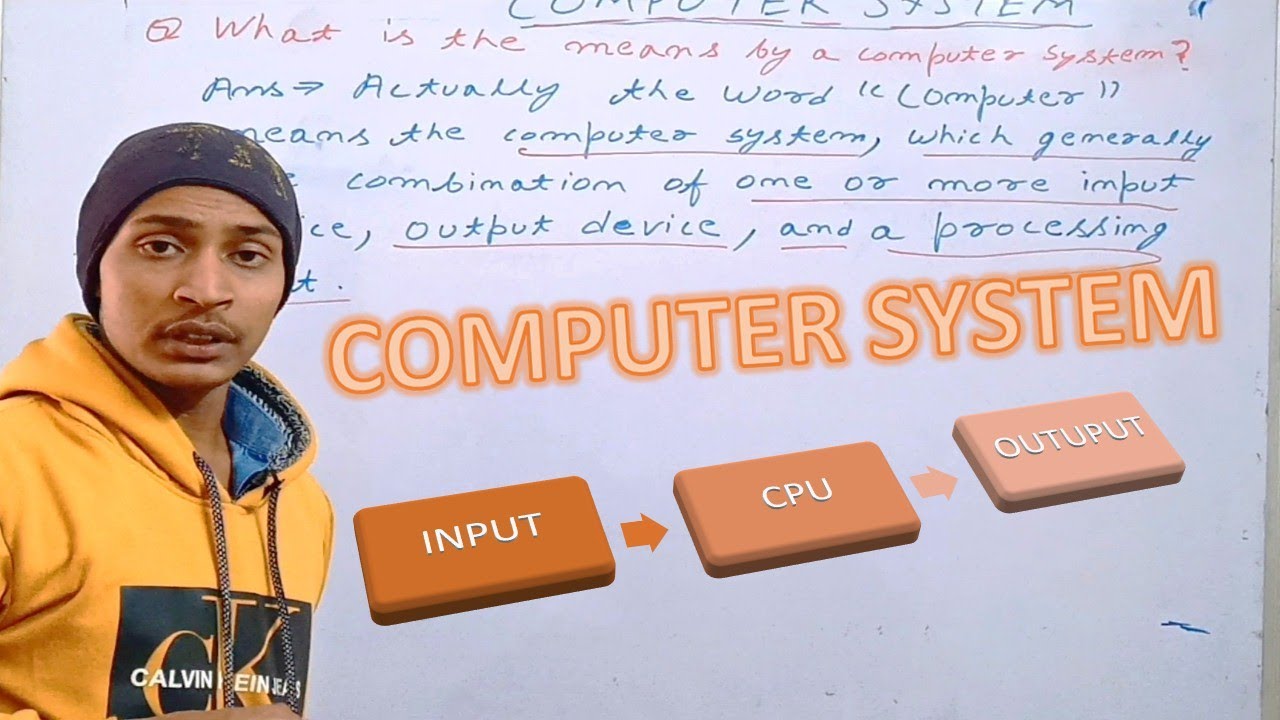 COMPUTER SYSTEM
Q What is the means by a computer system?
Ans⇒ Actually the word "Computer"
means the computer system, which generally
combination of one or more input
output device, and a processing
COMPUTER SYSTEM
INPUT
CPU
OUTUPUT
CK
CALVIN KLEIN JEANS